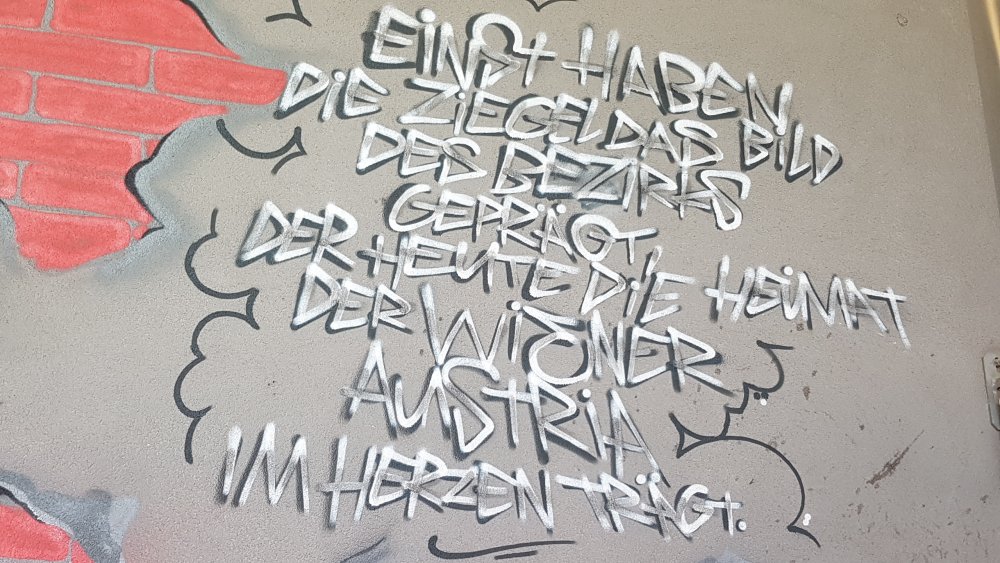 EiNST HABEN
DiE ZiEGEL DAS BiLD
DES BEZiRKS
GEPRÄGT,
DER HEUTE DiE HEiMAT
DER WiENER
AUSTRiA
IM HERZEN TRÄGT.